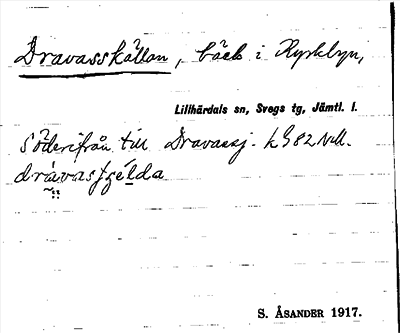 Dravasskällan, bäck i Kyrkbyn,
Lillhärdals sn, Svegs tg, Jämtl. l.
Söderifrån till Dravassj. k 982 NW.
S. ÅSANDER 1917.